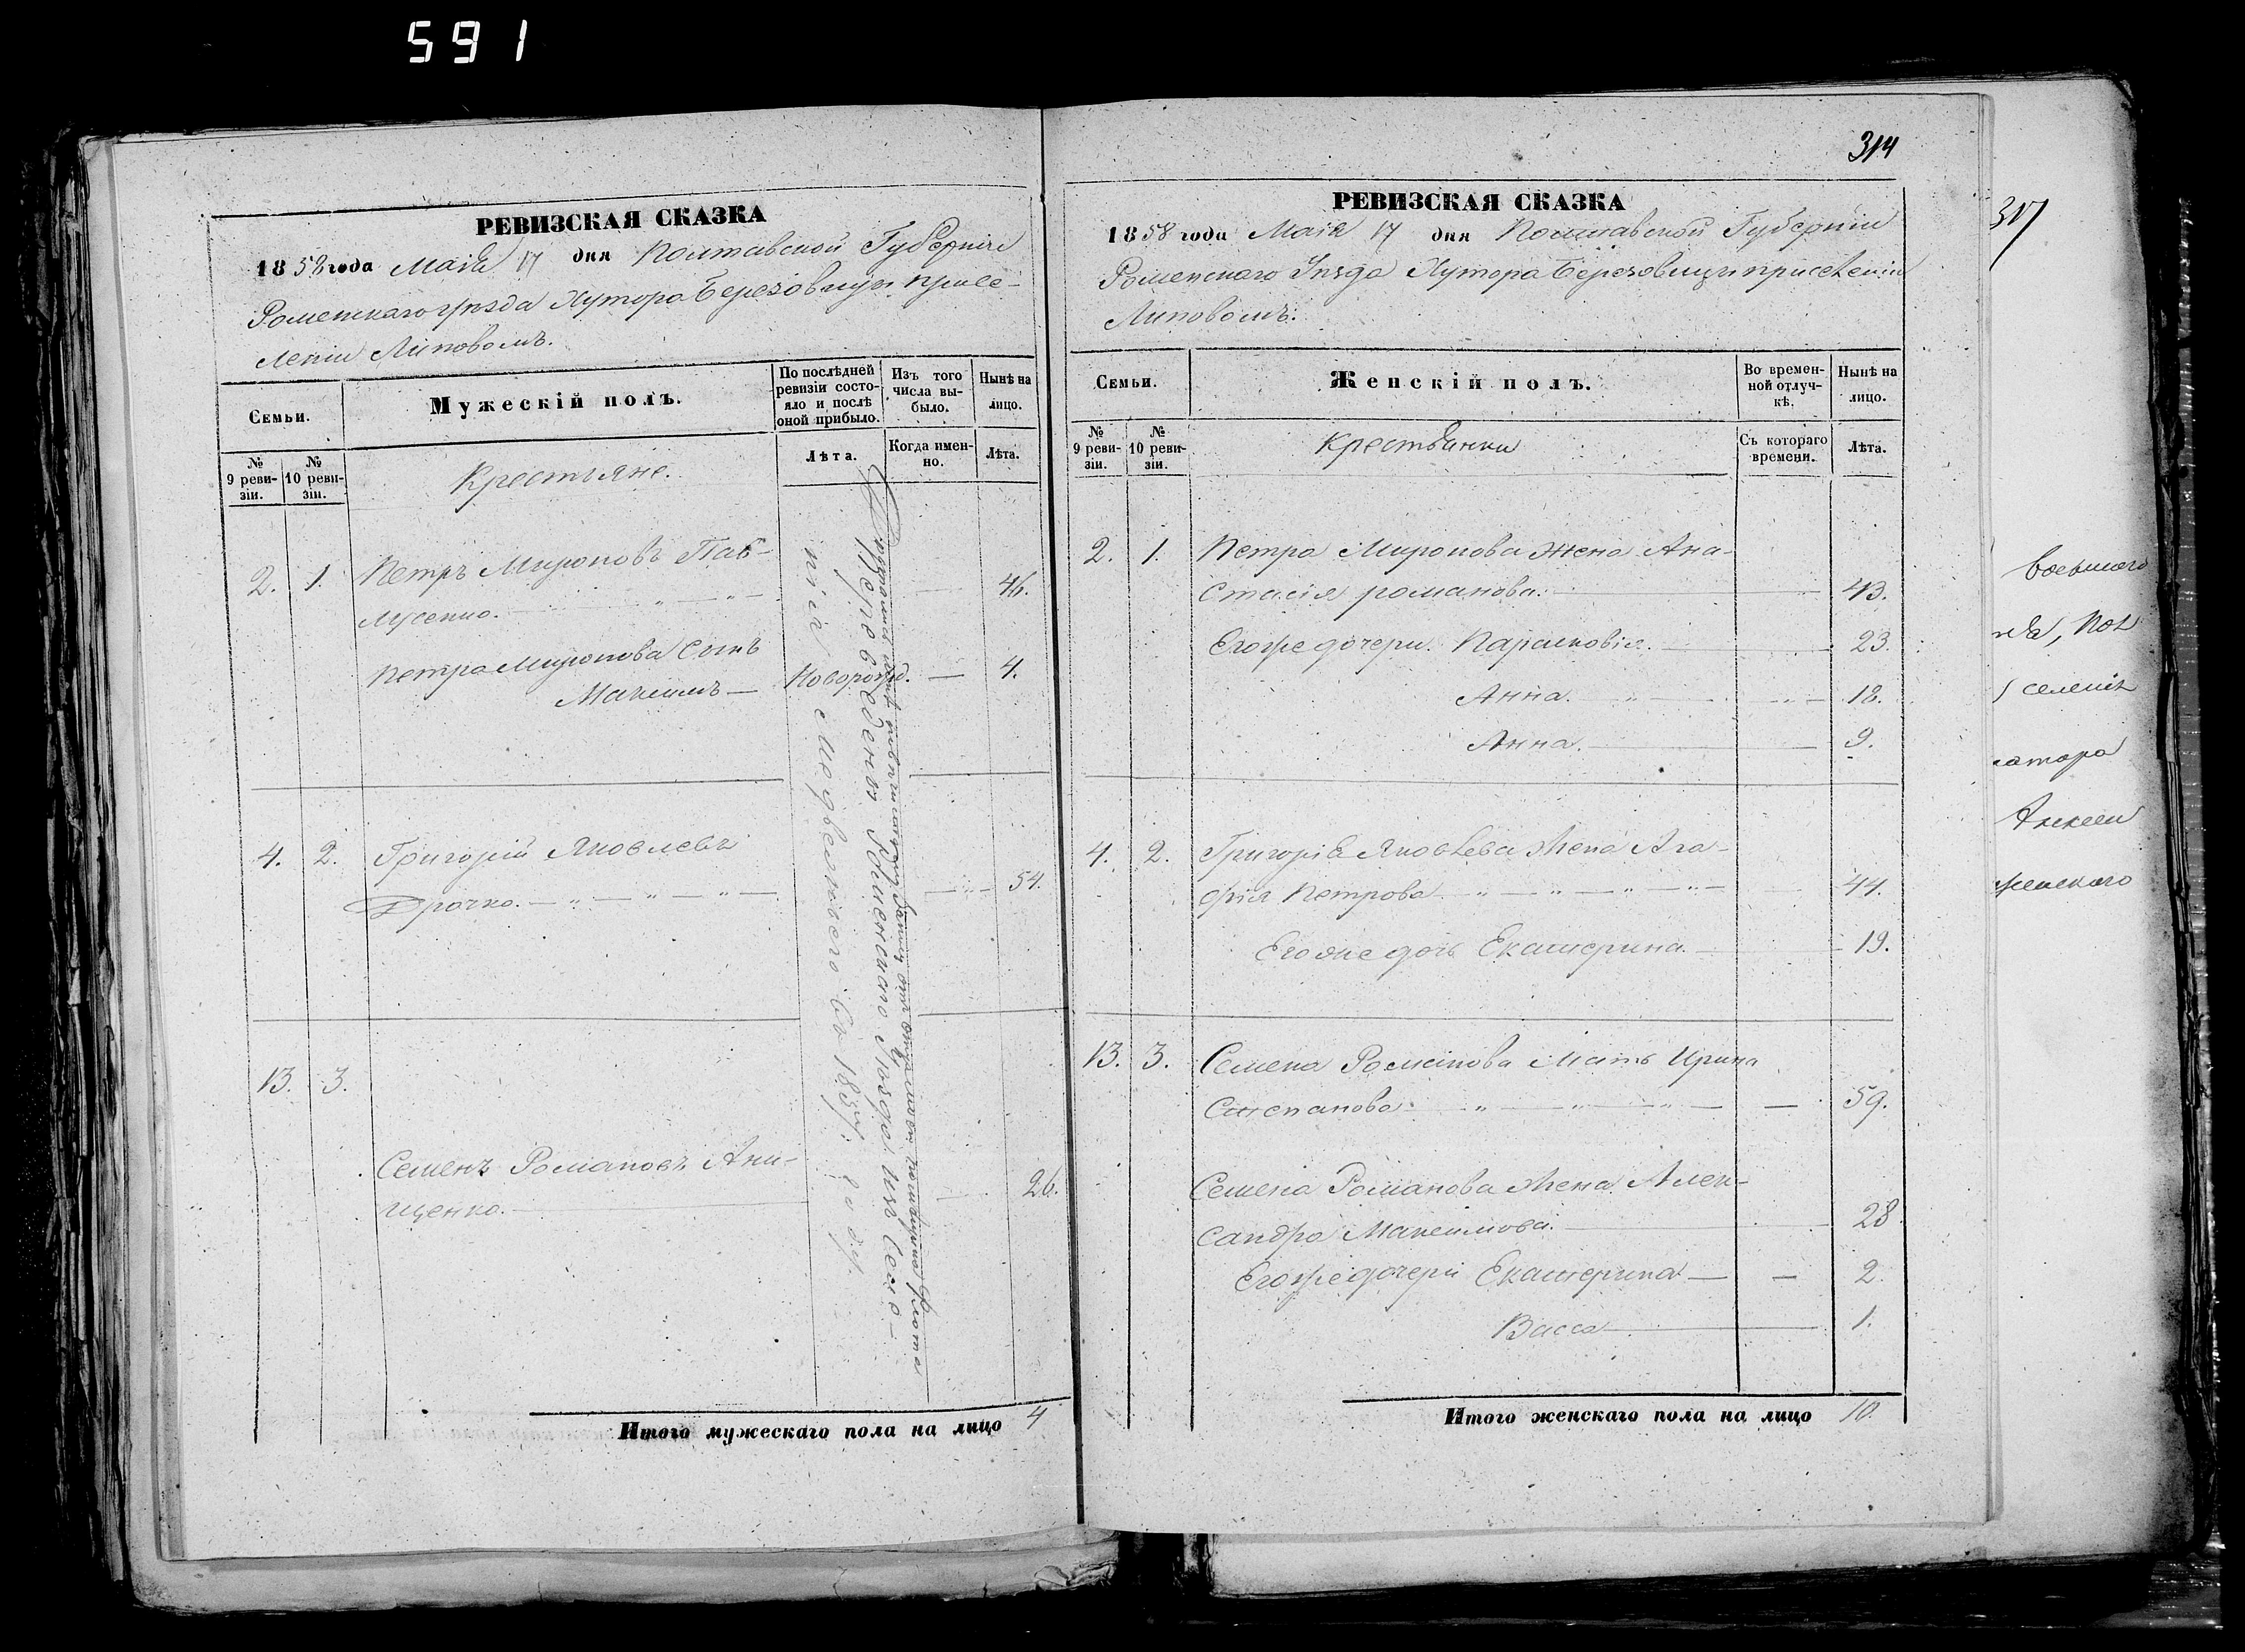 591
314
РЕВИЗСКАЯ СКАЗКА
1858 года Маія 17 дня Полтавской Губерніи
Роменскаго уѣзда Хутора Березовицы присе-
леніи Липовомъ.
Семьи.
Мужескій полъ.
По послѣдней ревизіи состо-яло и послѣ оной прибыло.
Изъ того числа вы-было.
Нынѣ на лицо.
№ 9 реви-зіи.
№ 10 реви-зіи.
Крестьяне.
Лѣта.
Когда имен-но.
Лѣта.
2. 1. Петръ Мироновъ Пав-
лусенко. 46.
Петра Миронова Сынъ
Максимъ — Новорожд. — 4.
4. 2. Григорій Яковлевъ
Дрочко. 54.
13. 3.
Семенъ Романовъ Ани-
щенко. 26.
Переведены Роменскаго уѣзда изъ селе-
нія съ 1857 году
Итого мужескаго пола на лицо 4
РЕВИЗСКАЯ СКАЗКА
1858 года Маія 17 дня Полтавской Губерніи
Роменскаго Уѣзда Хутора Березовицы приселеніи
Липовомъ.
Семьи.
Женскій полъ.
Во времен-ной отлуч-кѣ.
Нынѣ на лицо.
№ 9 реви-зіи.
№ 10 реви-зіи.
Крестьянки
Съ котораго времени.
Лѣта.
2. 1. Петра Миронова жена Ана-
стасія романова. 43.
Егоже дочери. Парасковія. 23.
Анна. 18.
Анна. 9.
4. 2. Григорія Яковлева жена Ага-
фія Петрова 44.
Егоже дочь Екатерина. 19.
13. 3. Семена Романова Мать Ирина
Степанова 59.
Семена Романова жена Алек-
сандра Максимова. 28.
Егоже дочери Екатерина — — 2.
Васса 1.
Итого женскаго пола на лицо 10.
317
восьмаго
селеніи
женскаго